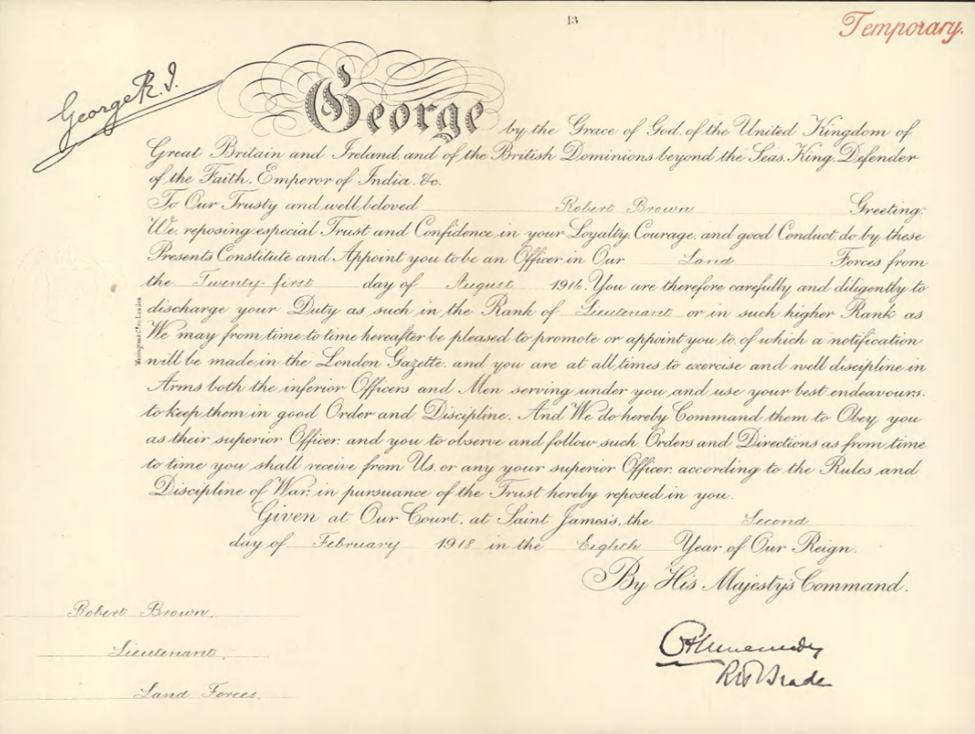 13
Temporary.
George R.I.
George by the Grace of God, of the United Kingdom of
Great Britain and Ireland, and of the British Dominions beyond the Seas, King, Defender
of the Faith, Emperor of India, &c.
To Our Trusty and well beloved Robert Brown Greeting:
We, reposing especial Trust and Confidence in your Loyalty, Courage, and good Conduct, do by these
Presents Constitute and Appoint you to be an Officer in Our Land Forces from
the Twenty-first day of August 1916. You are therefore carefully and diligently to
discharge your Duty as such in the Rank of Lieutenant or in such higher Rank as
We may from time to time hereafter be pleased to promote or appoint you to, of which a notification
will be made in the London Gazette, and you are at all times to exercise and well discipline in
Arms both the inferior Officers and Men serving under you and use your best endeavours
to keep them in good Order and Discipline. And We do hereby Command them to Obey you
as their superior Officer, and you to observe and follow such Orders and Directions as from time
to time you shall receive from Us, or any your superior Officer, according to the Rules and
Discipline of War, in pursuance of the Trust hereby reposed in you.
Given at Our Court, at Saint James's, the Second
day of February 1918 in the Eighth Year of Our Reign.
By His Majesty's Command.
Robert Brown.
Lieutenant.
Land Forces.
Brade